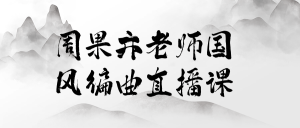 周果卉老师国
风编曲直播课